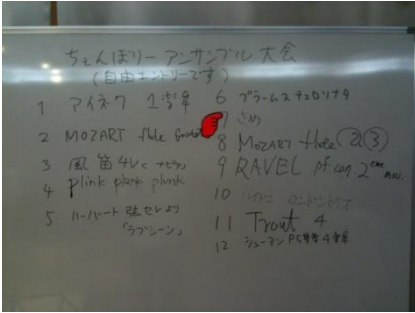 ちぇんばりー アンサンブル 大会
(自由エントリーです)
1 アイネク 1楽章
2 MOZART flute
3 風笛 4Vc
4 plink plank plunk
5 ハーバート 弦セレより
「ラブシーン」
6 ブラームス チェロソナタ
7
8 MOZART flute ② ③
9 RAVEL pf.con 2 eme mov.
10
11 Trout 4
12 シューマン P5重奏 4楽章